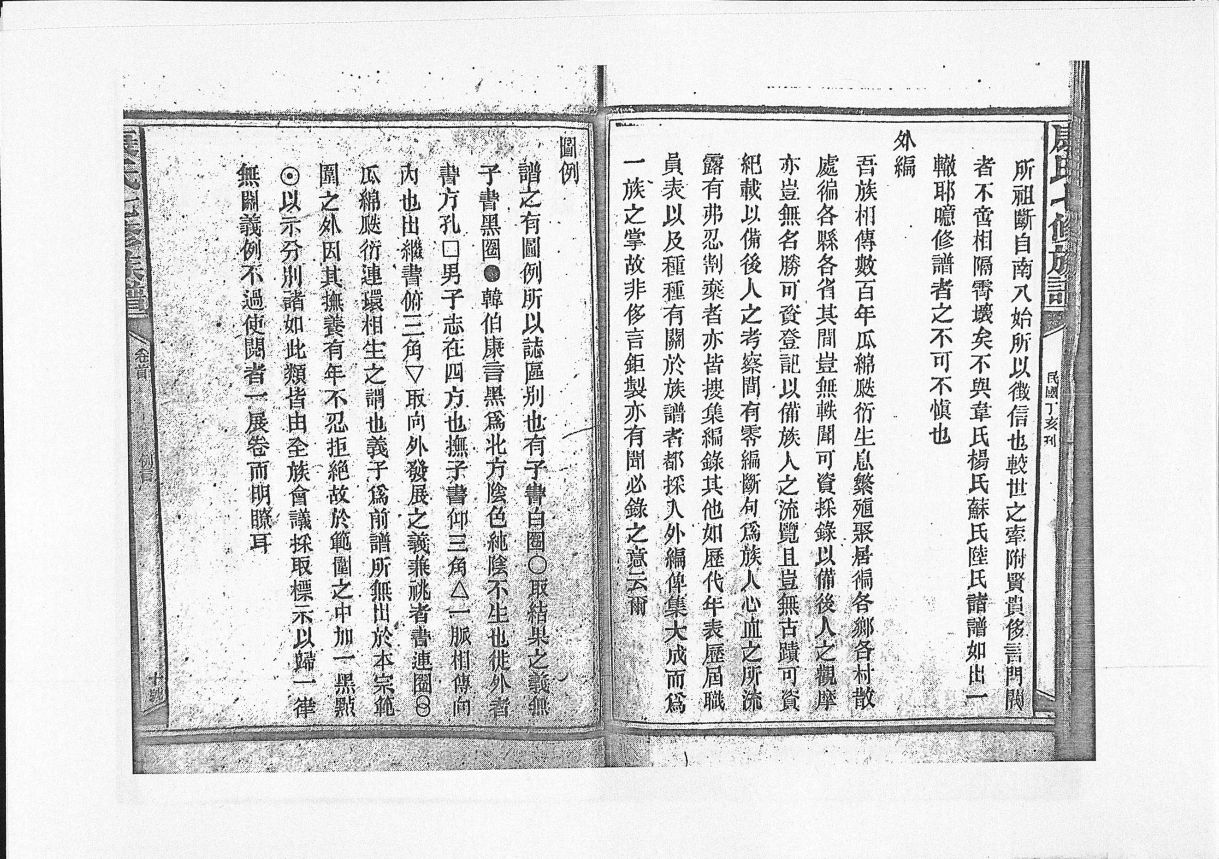 康氏七修族譜
民國丁亥刊
所祖斷自南八始所以徵信也較世之牽附賢貴侈言門閥
者不啻相隔霄壤矣不與韋氏楊氏蘇氏陸氏諸譜如出一
轍耶噫修譜者之不可不慎也
外編
吾族相傳數百年瓜綿瓞衍生息繁殖聚居徧各鄉各村散
處徧各縣各省其間豈無軼聞可資採錄以備後人之觀摩
亦豈無名勝可資登記以備族人之流覽且豈無古蹟可資
紀載以備後人之考察間有零編斷句爲族人心血之所流
露有弗忍割棄者亦皆搜集編錄其他如歷代年表歷屆職
員表以及種種有關於族譜者都採入外編俾集大成而爲
一族之掌故非侈言鉅製亦有聞必錄之意云爾
圖例
譜之有圖例所以誌區别也有子書白圈○取結果之義無
子書黑圈●韓伯康言黑爲北方陰色純陰不生也徙外者
書方孔□男子志在四方也撫子書仰三角△一脈相傳向
內也出繼書俯三角▽取向外發展之義兼祧者書連圈
瓜綿瓞衍連環相生之謂也義子爲前譜所無出於本宗範
圍之外因其撫養有年不忍拒絕故於範圍之中加一黑點
⊙以示分别諸如此類皆由全族會議採取標示以歸一律
無關義例不過使閱者一展卷而明瞭耳
康氏七修族譜
卷首